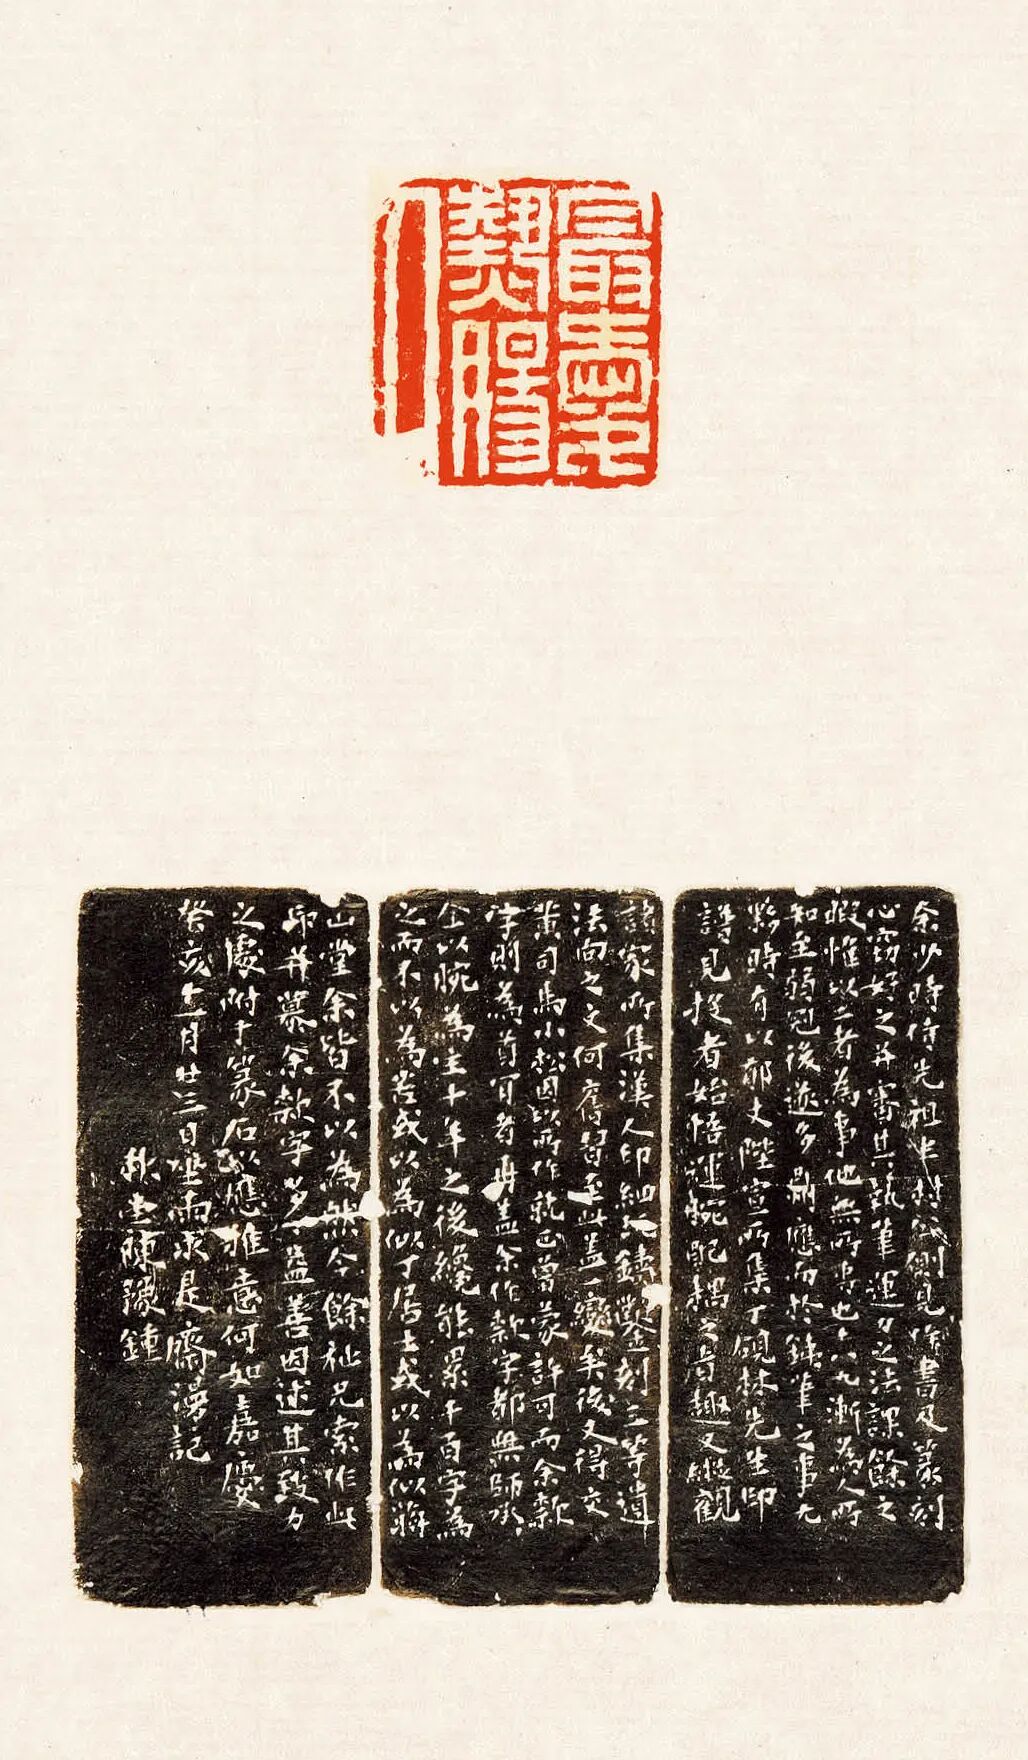 最㤅
熱腸
人
余少時侍先祖半村公側見作書及篆刻
心竊好之并審其執筆運刀之法課餘之
暇惟以二者為事他無所專也十八九漸為人所
知至弱冠後遂多酬應而於鐵筆之事尤
繁時有以郁丈陛宣所集丁硯林先生印
譜見投者始悟運腕配耦之旨趣又縱觀
諸家所集漢人印細文鑄鑿刻三等遺
法向之文何舊習至此蓋一變矣後又得交
黃司馬小松因以所作就正曾蒙許可而余款
字則為首肯者再蓋余作款字都無師承
全以腕為主十年之後纔能累千百字為
之而不以為苦或以為似丁居士或以為似蔣
山堂余皆不以為然今餘祉兄索作此
印并慕余款字多〻益善因述其致力
之處附于篆石以應雅意何如嘉慶
癸亥十二月廿三日坐雨求是齋漫記
秋堂陳豫鍾